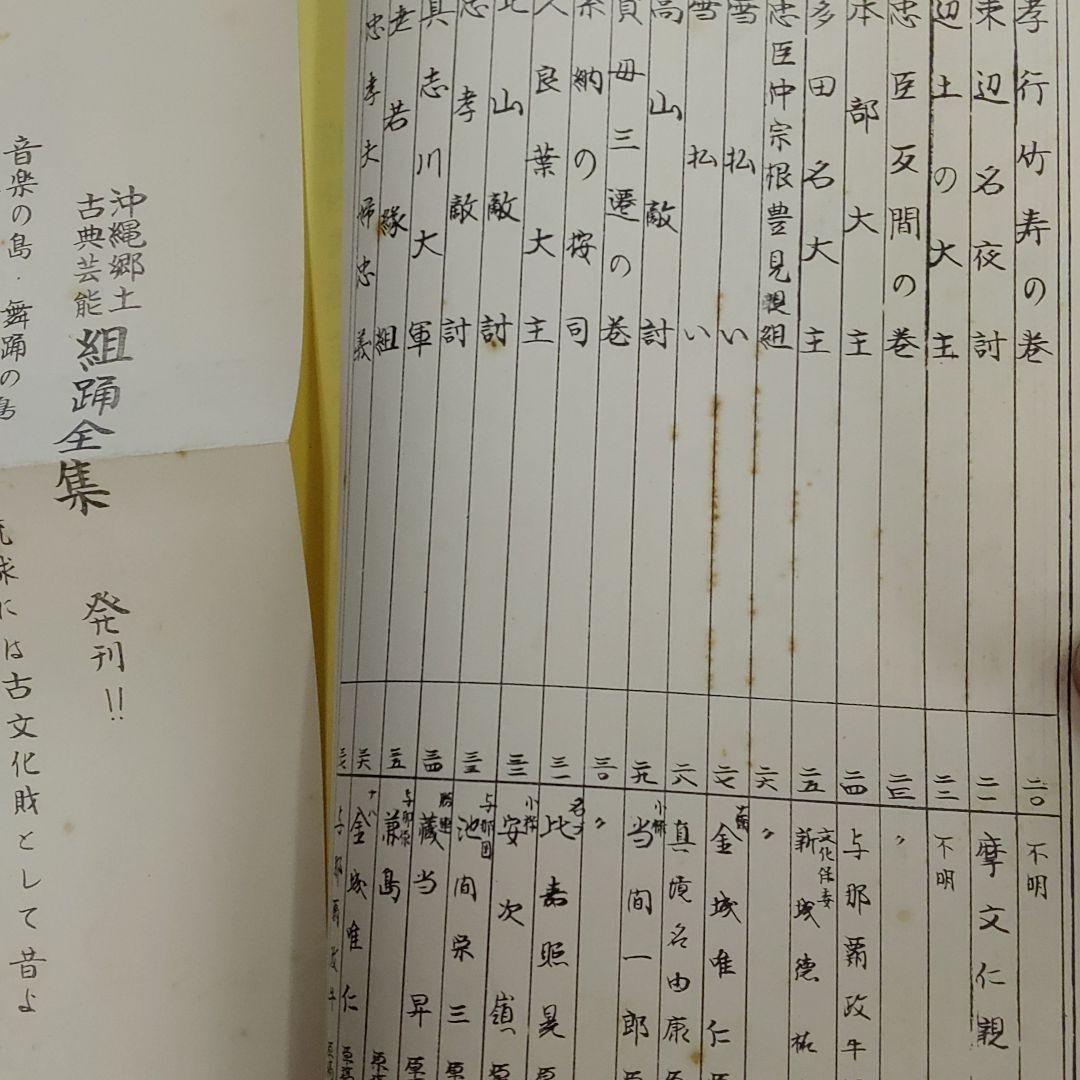 孝行竹寿の巻
束辺名夜討
辺土の大主
忠臣反間の巻
本部大主
多田名大主
忠臣仲宗根豊見親組
雪払い
雪払い
高山敵討
貞母三遷の巻
糸納の按司
久良葉大主
山敵討
忠孝敵討
具志川大軍
老若縁組
忠孝夫婦忠義
二〇 不明
二一 摩文仁親
二二 不明
二三 〃
二四 与那覇政牛
二五 文化保委 新城徳祐
二六 〃
二七 金城唯仁
二八 真境名由康
二九 小禄 当間一郎
三〇 〃
三一 名大 比嘉照晃
三二 小禄 安次嶺
三三 与那国 池間栄三
三四 勝連 蔵当昇
三五 与那原 兼島
三六 金城唯仁
三七
沖縄郷土
古典芸能
組踊全集 発刊!!
音楽の島・舞踊の島
琉球には古文化財として昔よ